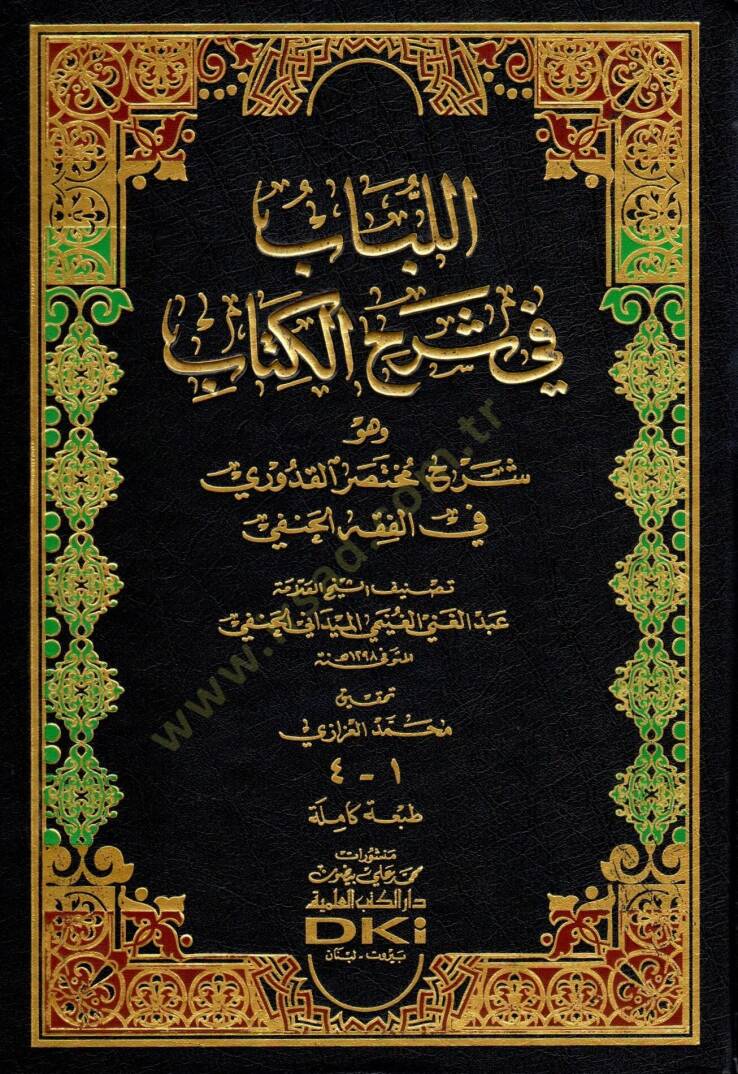 اللُّبَابُ
فِي شَرْحِ الكِتَابِ
وهو
شَرْحُ مُختَصَر القدُوري
في الفِقْه الحنفي
تصنيف الشيخ العلامة
عَبد الغَني الغُنيمي الميداني الحنفي
المتوفى ١٢٩٨هـ سنة
تحقيق
محمَّد العَزازي
١ - ٤
طبعة كاملة
منشورات
محمد علي بيضون
دار الكتب العلمية
DKi
بيروت - لبنان